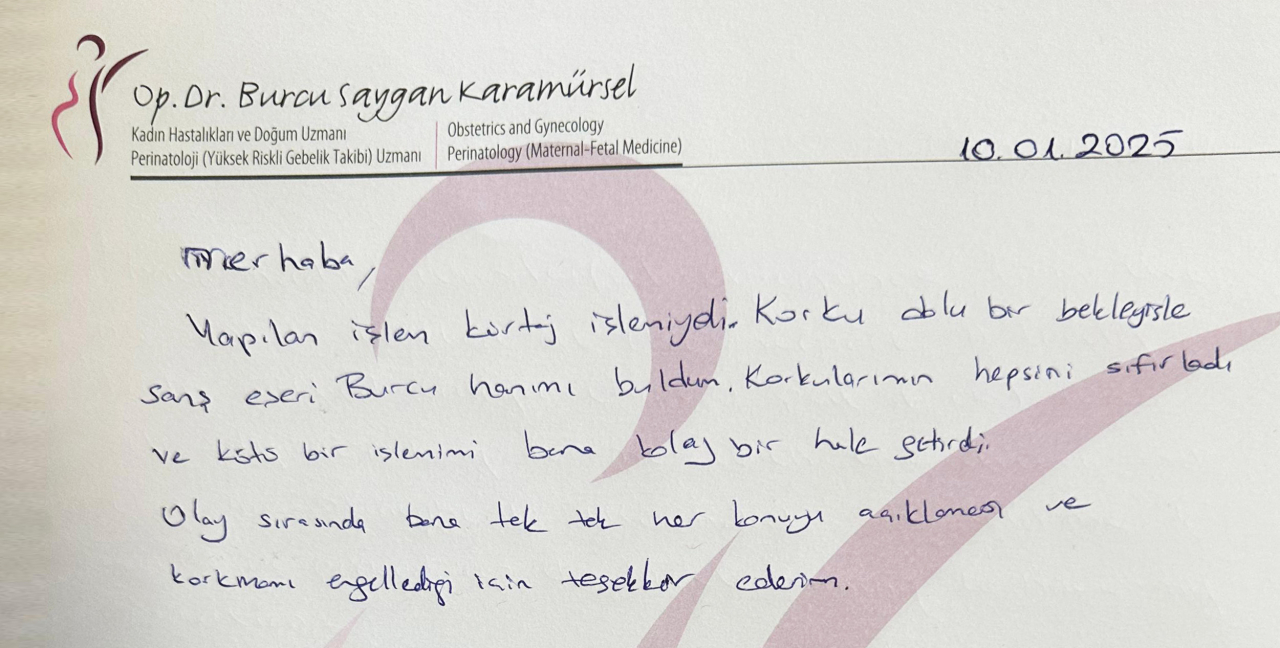 Op. Dr. Burcu Saygan Karamürsel
Kadın Hastalıkları ve Doğum Uzmanı
Perinatoloji (Yüksek Riskli Gebelik Takibi) Uzmanı
Obstetrics and Gynecology
Perinatology (Maternal-Fetal Medicine)
10.01.2025
merhaba,
Yapılan işlen kürtaj işleniydi. Korku dolu bir bekleyişle
şans eseri Burcu hanımı buldum. Korkularımın hepsini sıfırladı
ve kötü bir işlenimi bana kolay bir hale getirdi.
Olay sırasında bana tek tek her konuyu açıklaması ve
korkmamı engellediği için teşekkür ederim.